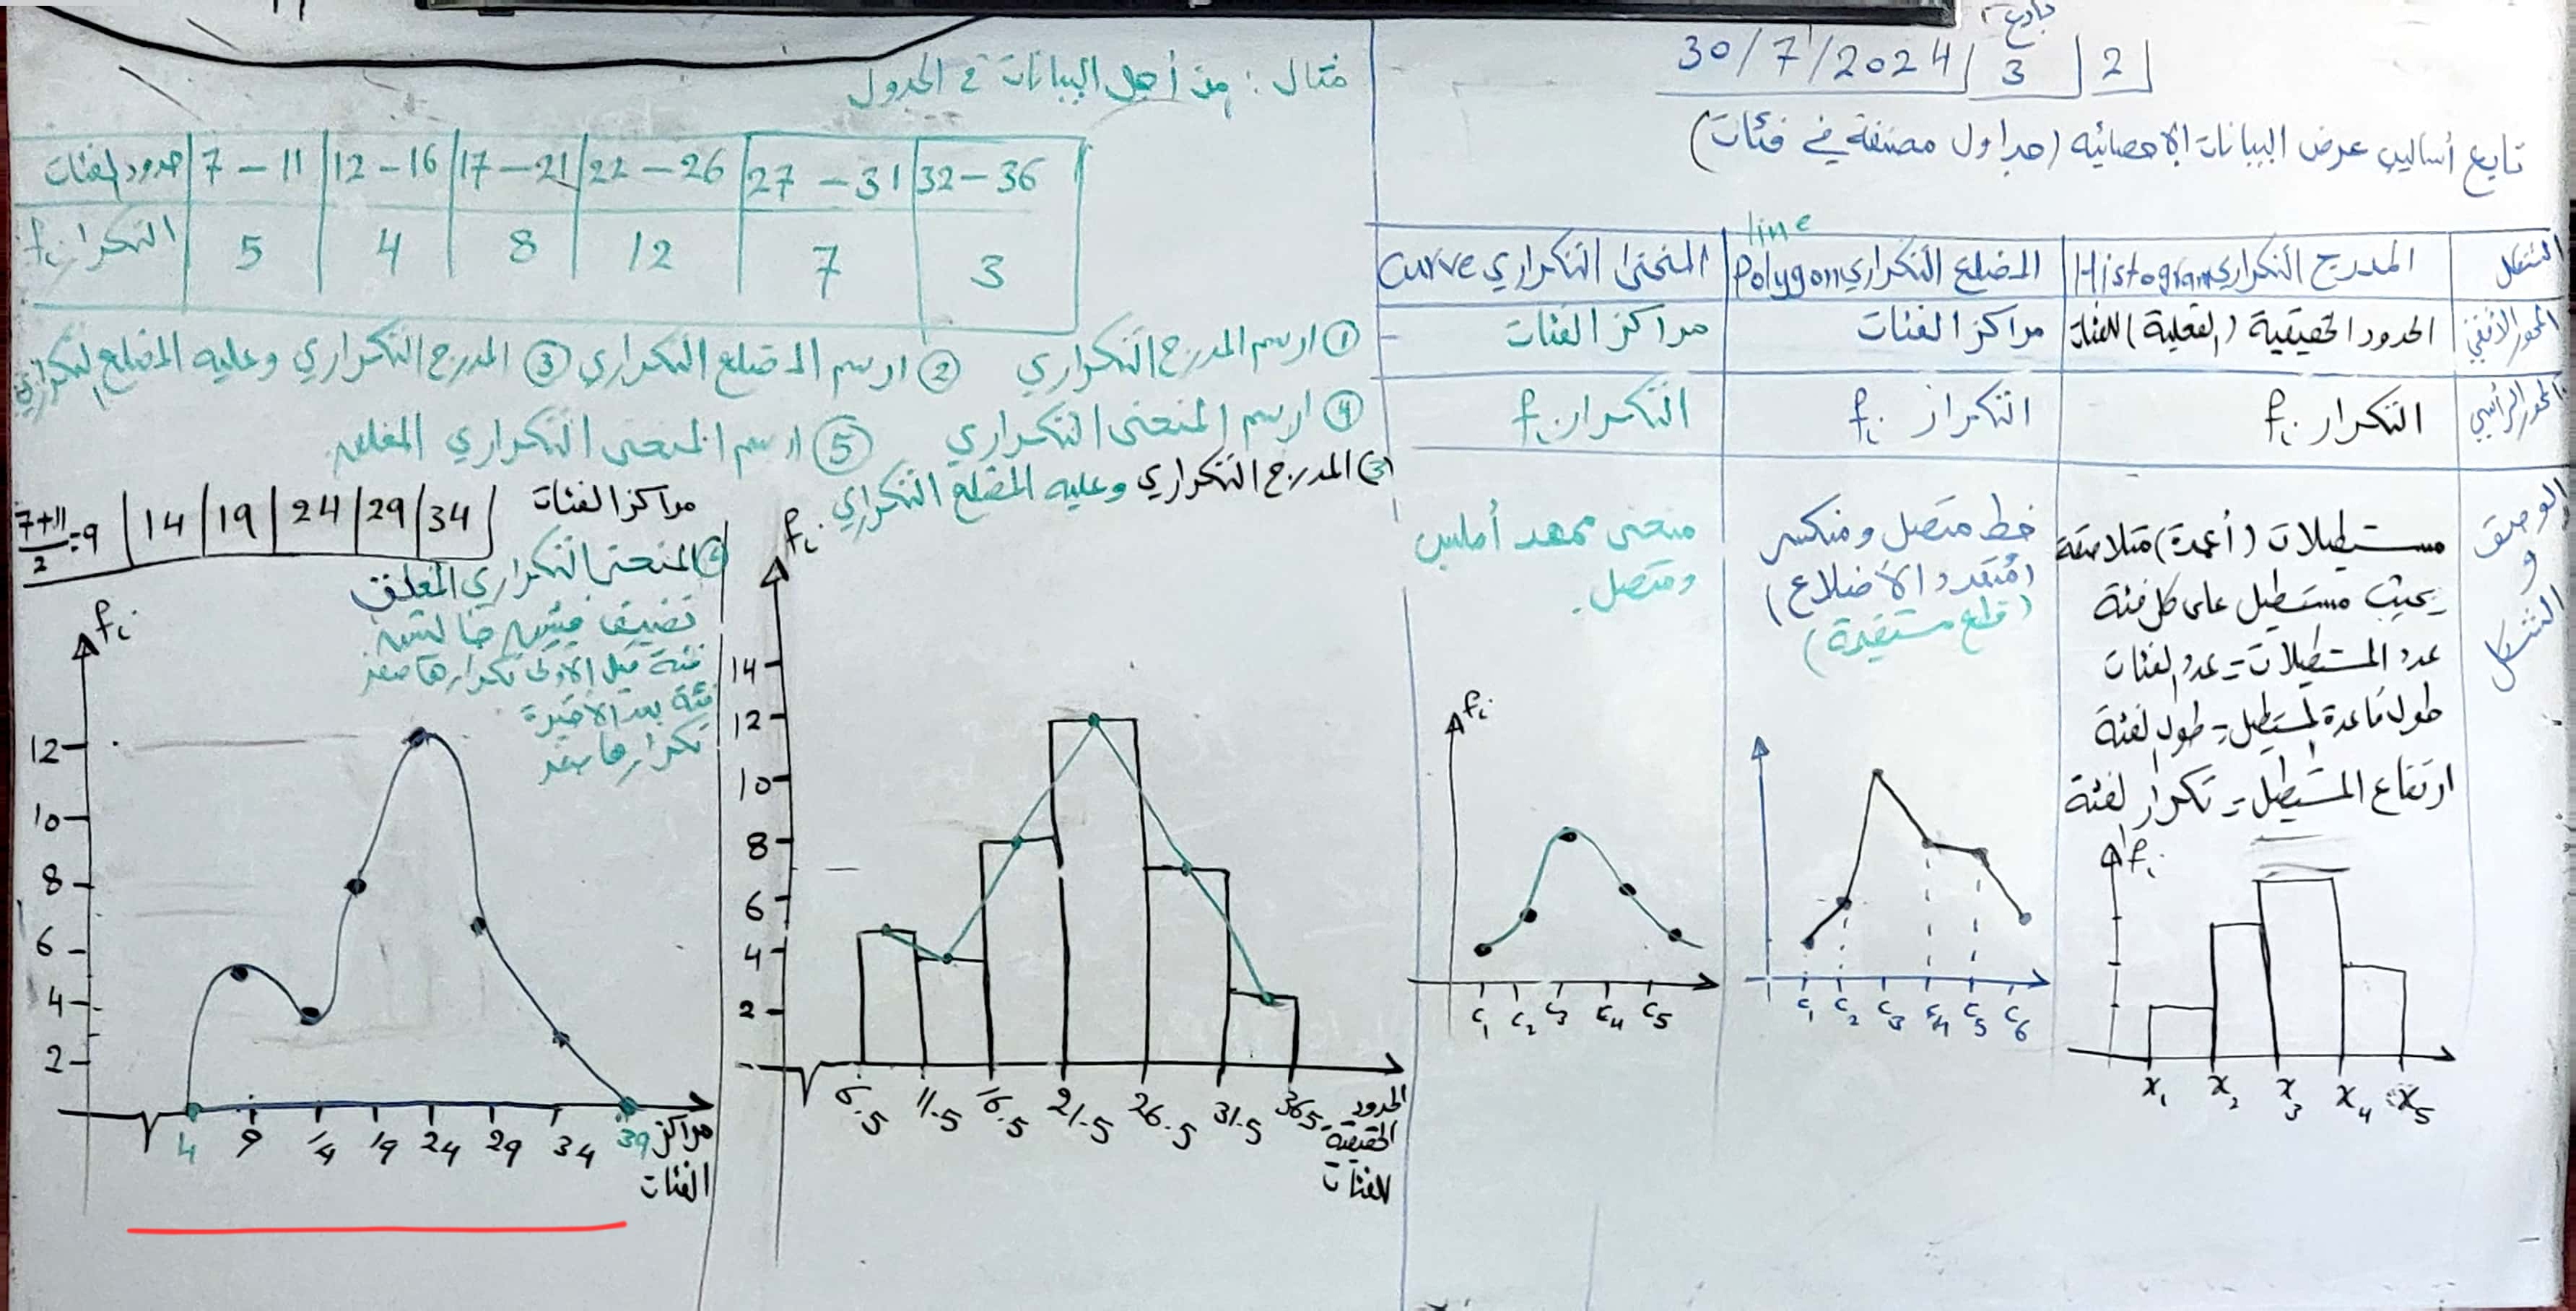 30/7/2024 3 2
تابع أساليب عرض البيانات الإحصائيه (جداول مصنفة في فئات)
الشكل
المدرج التكراري Histogram
المضلع التكراري Polygon
line
المنحنى التكراري Curve
المحور الأفقي
الحدود الحقيقية (الفعلية) للفئات
مراكز الفئات
مراكز الفئات
المحور الرأسي
التكرار fi
التكرار fi
التكرار fi
الوصف و الشكل
مستطيلات (أعمدة) متلاصقة
بحيث مستطيل على كل فئة
عدد المستطيلات = عدد الفئات
طول قاعدة المستطيل = طول الفئة
ارتفاع المستطيل = تكرار الفئة
fi
x1 x2 x3 x4 x5
خط متصل ومنكسر
(متعدد الأضلاع)
(قطع مستقيمة)
c1 c2 c3 c4 c5 c6
منحنى ممهد أملس
ومتصل.
fi
c1 c2 c3 c4 c5
مثال: من أجل البيانات في الجدول
حدود الفئات 7 – 11 12 – 16 17 – 21 22 – 26 27 – 31 32 – 36
التكرار fi 5 4 8 12 7 3
① ارسم المدرج التكراري ② ارسم المضلع التكراري ③ المدرج التكراري وعليه المضلع التكراري
④ ارسم المنحنى التكراري ⑤ ارسم المنحنى التكراري المغلق
③ المدرج التكراري وعليه المضلع التكراري
fi
14
12
10
8
6
4
2
6.5 11.5 16.5 21.5 26.5 31.5 36.5
الحدود
الحقيقية
للفئات
مراكز الفئات
7+11/2=9 14 19 24 29 34
المنحنى التكراري المغلق
نضيف فئتين خاليتين
فئة قبل الأولى تكرارها صفر
فئة بعد الأخيرة
تكرارها صفر
fi
12
10
8
6
4
2
4 9 14 19 24 29 34 39
مراكز
الفئات